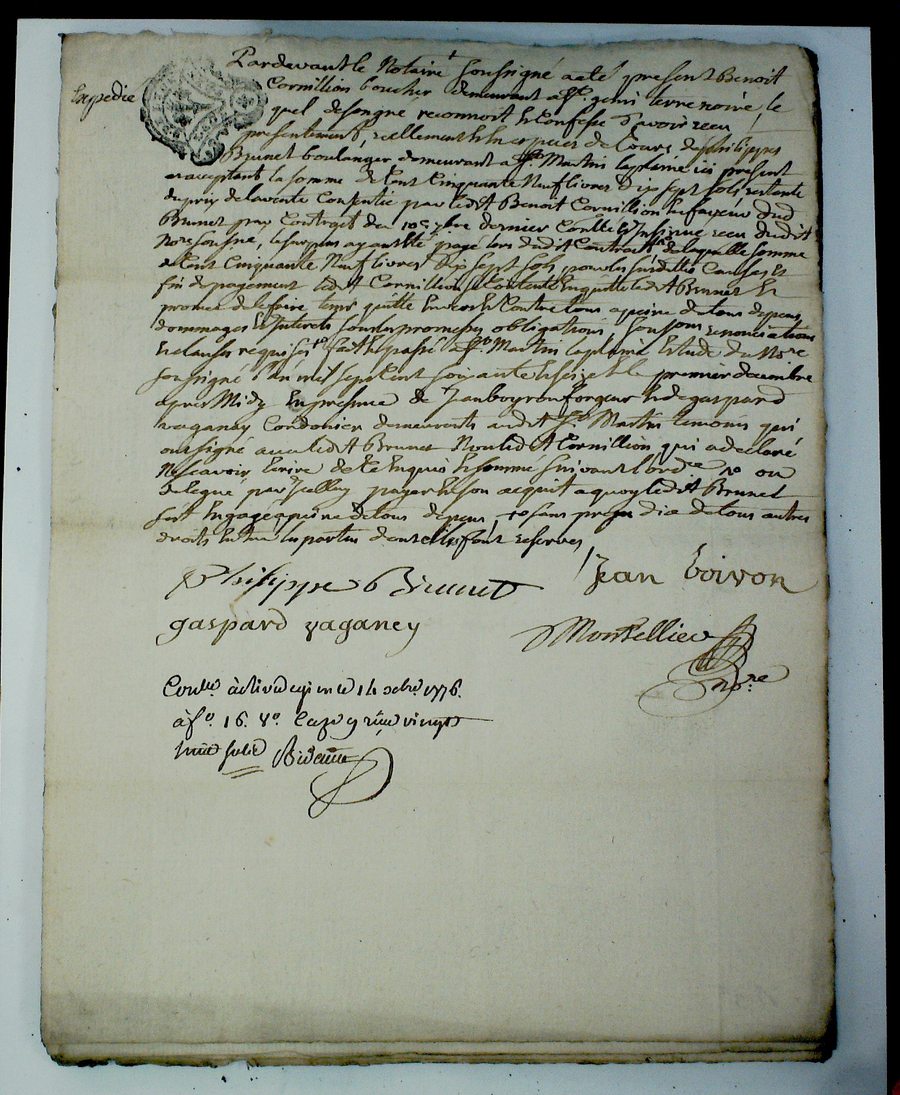 Pardevant le Notaire soussigné a eté present Benoit
Expedie
Cornillion boucher demeurant a St. genis terre noire, le
quel de son gré reconnoit et Confesse d'avoir receu
presentement, reellement et en especes de Cours de philippes
Brunet boulanger demeurant a St. Martin la plaine ici present
et acceptant la somme de Cent Cinquante Neuf livres Dix sept sols restante
du prix de la vente Consentie par ledit Benoit Cornillion en faveur dud
Brunet par Contrat du 10e dernier Conllé et Insinué receu dudit
Nore soussné, le surplus ayant eté payé lors dudit Contrat de laquelle somme
de Cent Cinquante Neuf livres Dix sept sols pour les susdittes Causes et
fin de payement ledit Cornillion Content En quitte ledit Brunet et
promet de le faire tenir quitte Envers et Contre tous a peine de tous depens
dommages et Interets sous les promesses obligations, soumons renonciations
et clauses requises fait et passé a St. Martin la plaine Etude du Nore
soussigné l'an mil sept cent soixante et seize et le premier decembre
apres Midy En presence de Jean boyron forgeur et de gaspard
vaganey Cordonier demeurants audit St Martin temoins qui
ont signé avec ledit Brunet Non ledit Cornillion qui a declaré
Ne scavoir écrire de ce Enquis et sommé suivant l'ordce
delegué par Icelluy payer et son acquit a quoy ledit Brunet
s'est Engagé a peine de tous depens, sans prejudice de tous autres
droits entre les parties dont elles font reserves
Philippe Brunet Jean boiron
gaspard vaganey Montellier
nore
Conllé à Rivedegier le 14 xbre 1776.
à fo. 16. Vo. Case 9 reçu vingt
huit sols